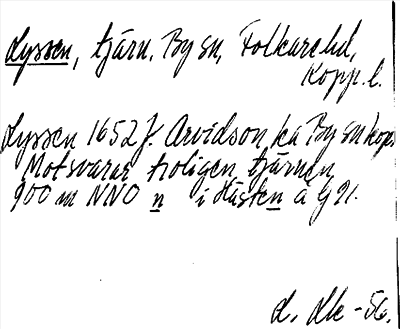 Lyssen, tjärn, By sn, Folkare hd,
Kopp. l.
Lyssen 1652 J. Arvidson ka By sn kopp
Motsvarar troligen tjärnen
900 m NNO n i Hästen å G 91.
L. Lk -56.